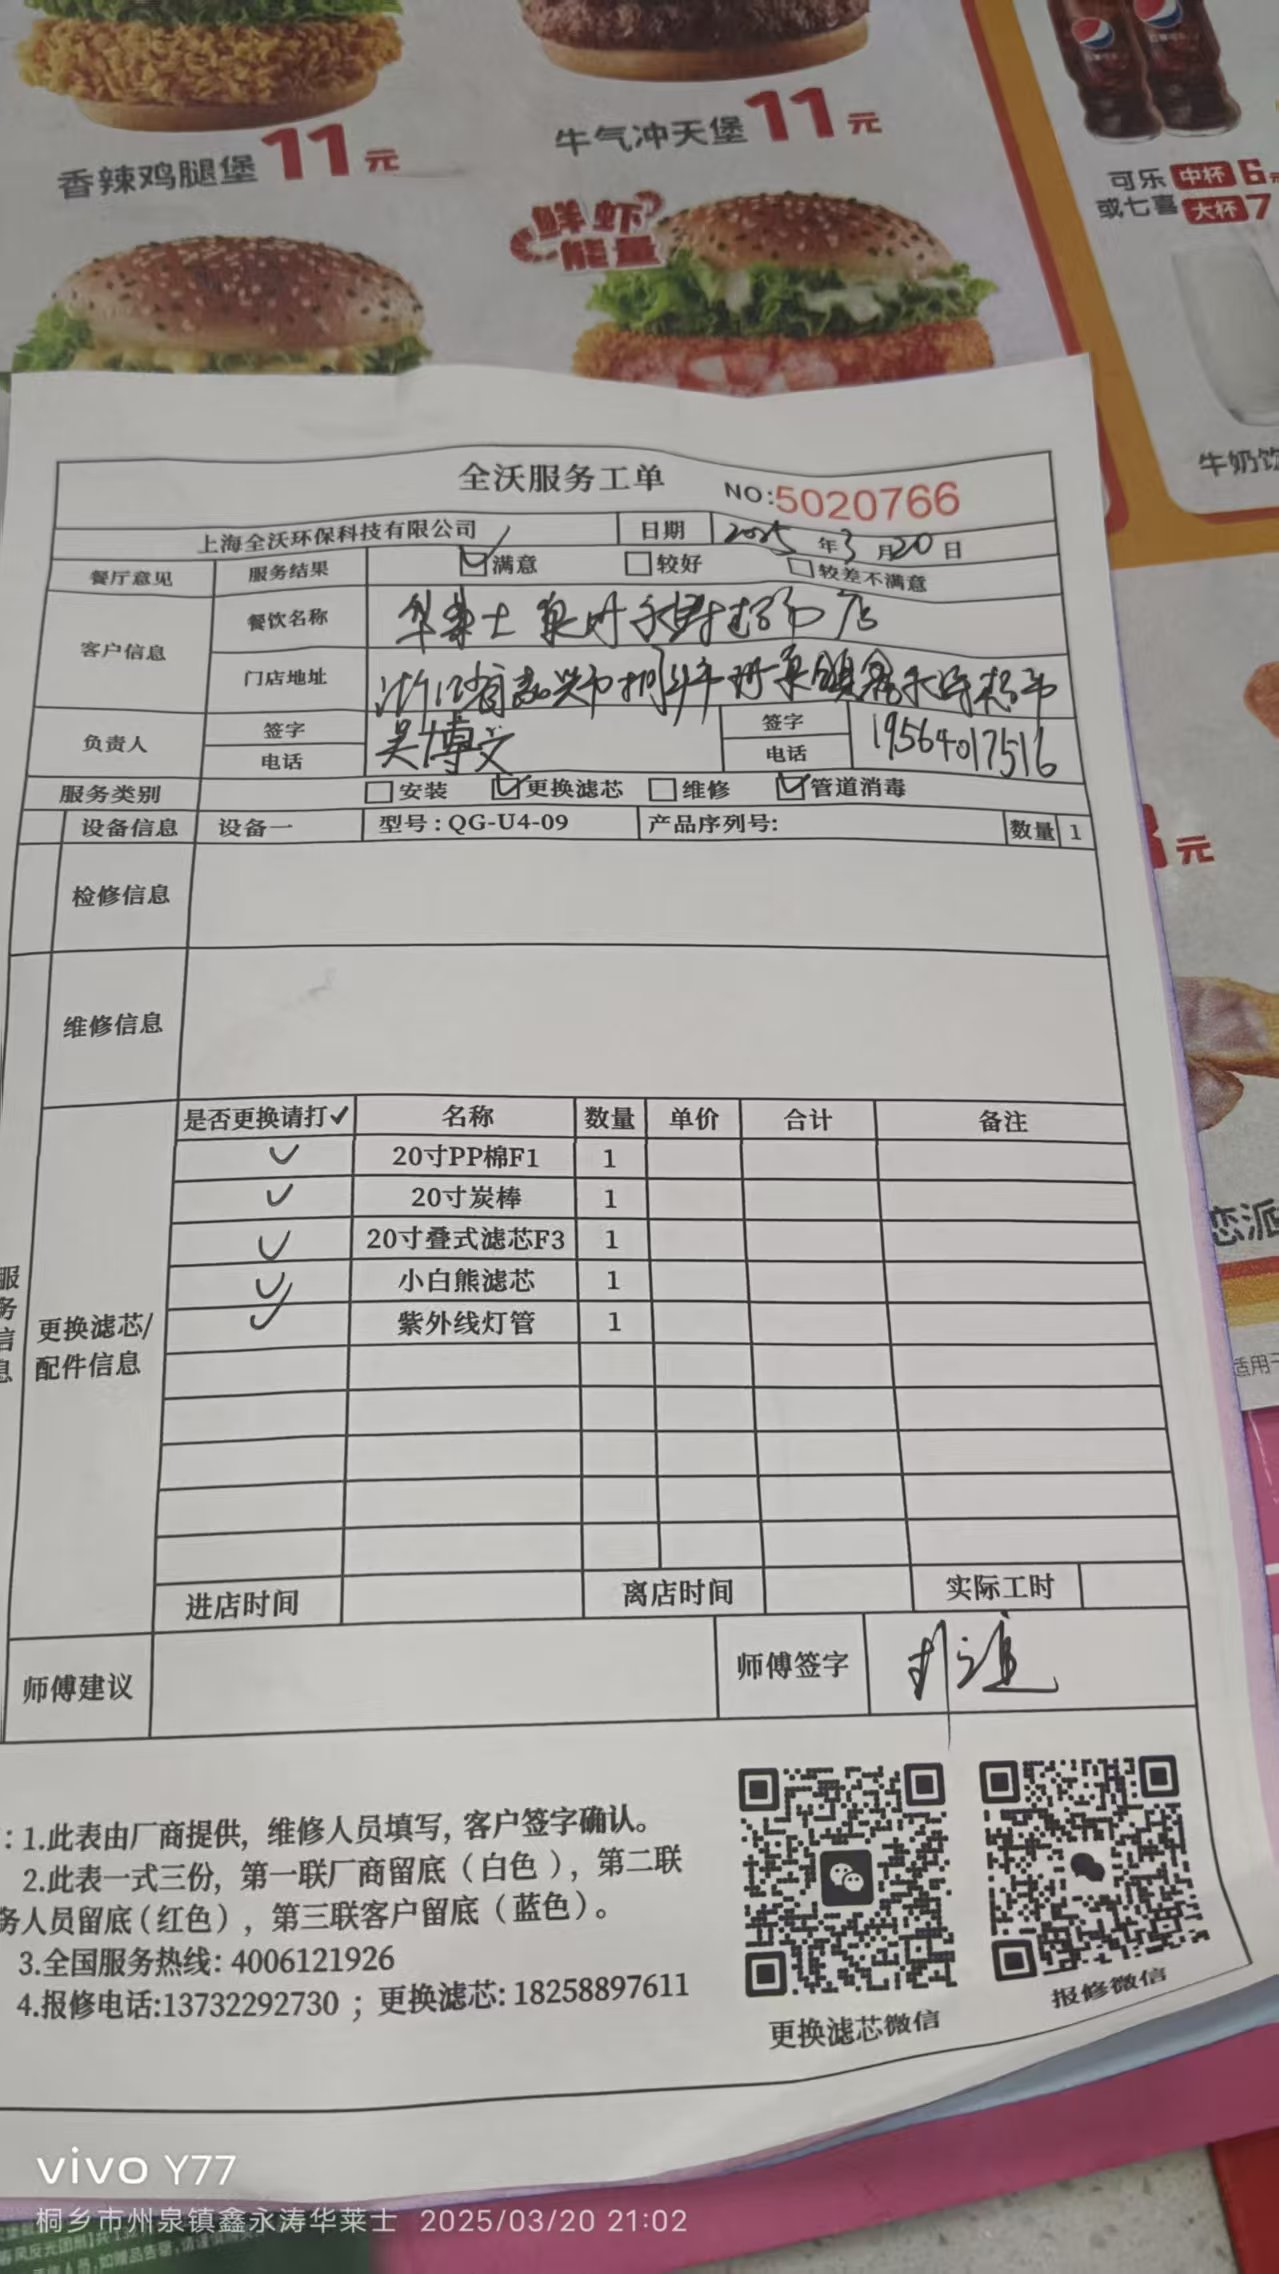 香辣鸡腿堡 11元
牛气冲天堡 11元
可乐 中杯 6元
或七喜 大杯 7
鲜虾
能量
牛奶饮
元
恋派
适用于
全沃服务工单
NO:5020766
上海全沃环保科技有限公司 日期 2025年3月20日
餐厅意见 服务结果 满意 较好 较差不满意
客户信息 餐饮名称 华莱士 店
门店地址 浙江省嘉兴市桐
负责人 签字 电话 吴博文 签字 电话 19564017516
服务类别 安装 更换滤芯 维修 管道消毒
设备信息 设备一 型号:QG-U4-09 产品序列号: 数量 1
检修信息
维修信息
服务信息
更换滤芯/
配件信息
是否更换请打✓ 名称 数量 单价 合计 备注
✓ 20寸PP棉F1 1
✓ 20寸炭棒 1
✓ 20寸叠式滤芯F3 1
✓ 小白熊滤芯 1
✓ 紫外线灯管 1
进店时间 离店时间 实际工时
师傅建议 师傅签字
: 1.此表由厂商提供, 维修人员填写, 客户签字确认。
2.此表一式三份, 第一联厂商留底（白色）, 第二联
务人员留底(红色）, 第三联客户留底（蓝色）。
3.全国服务热线: 4006121926
4.报修电话:13732292730 ; 更换滤芯: 18258897611
更换滤芯微信
报修微信
vivo Y77
桐乡市州泉镇鑫永涛华莱士 2025/03/20 21:02